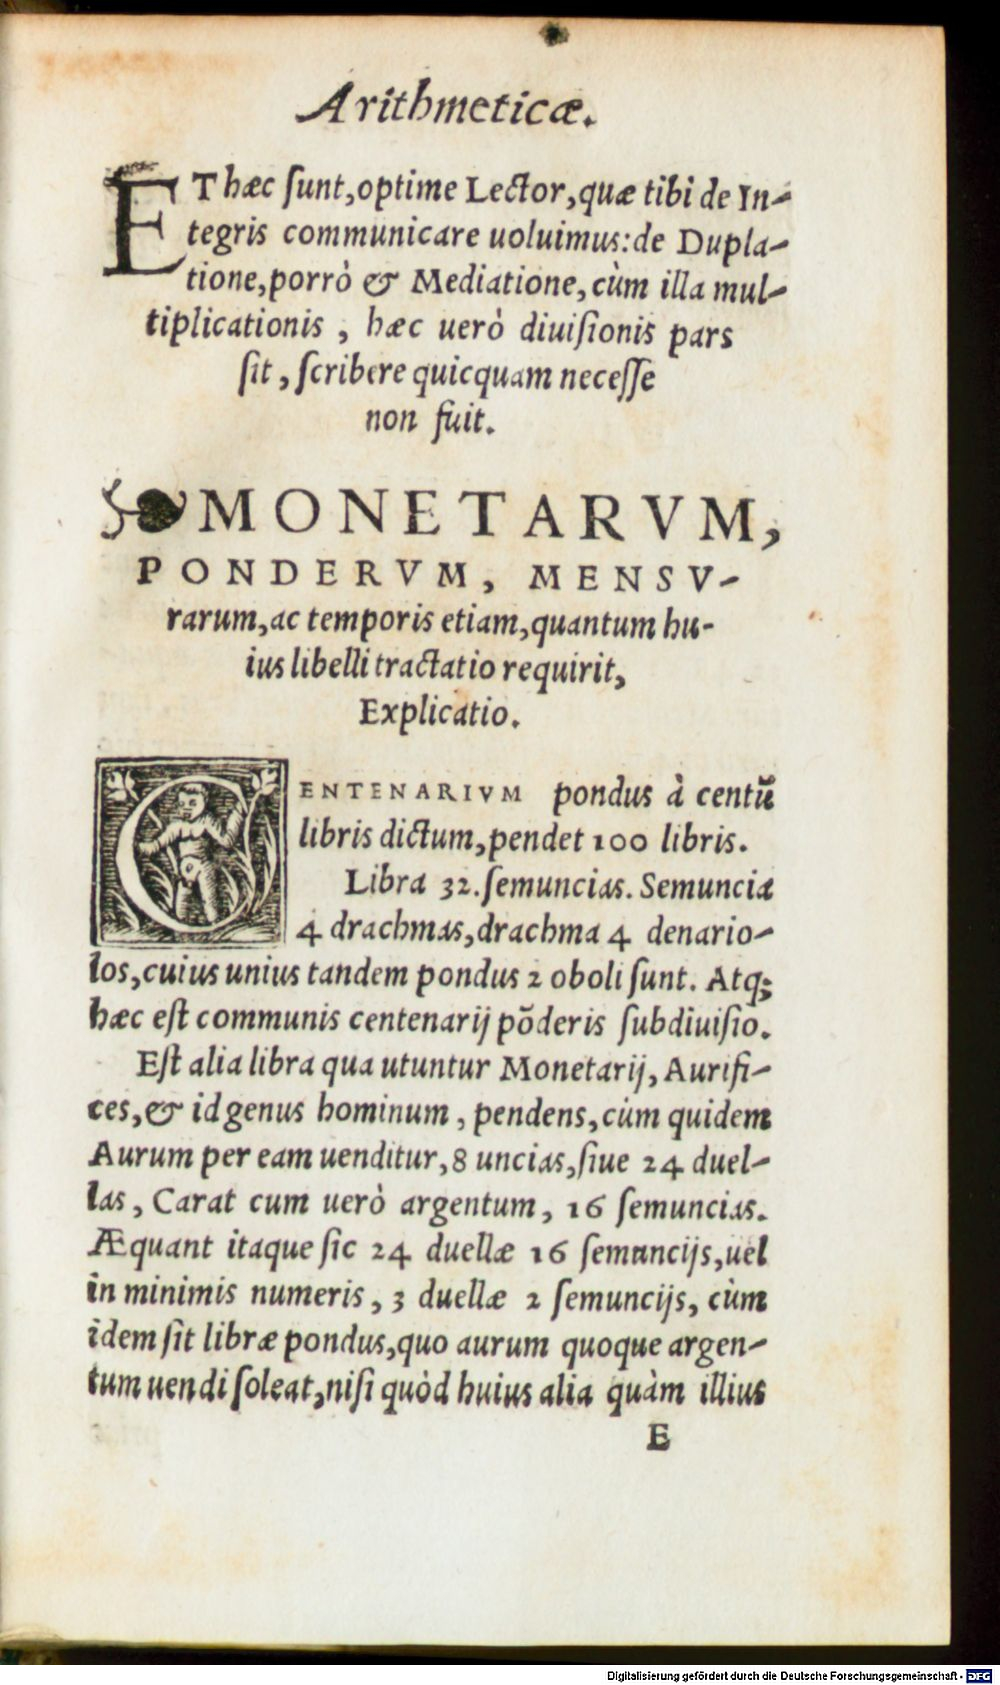 Arithmeticæ.
ET hæc ſunt, optime Lector, quæ tibi de In-
tegris communicare uoluimus: de Dupla-
tione, porrò & Mediatione, cùm illa mul-
tiplicationis, hæc uerò diuiſionis pars
ſit, ſcribere quicquam neceſſe
non fuit.
MONETARVM,
PONDERVM, MENSV-
rarum, ac temporis etiam, quantum hu-
ius libelli tractatio requirit,
Explicatio.
CENTENARIVM pondus à centũ
libris dictum, pendet 100 libris.
Libra 32. ſemuncias. Semuncia
4 drachmas, drachma 4 denario-
los, cuius unius tandem pondus 2 oboli ſunt. Atq;
hæc eſt communis centenarij põderis ſubdiuiſio.
Eſt alia libra qua utuntur Monetarij, Aurifi-
ces, & id genus hominum, pendens, cùm quidem
Aurum per eam uenditur, 8 uncias, ſiue 24 duel-
las, Carat cum uerò argentum, 16 ſemuncias.
Æquant itaque ſic 24 duellæ 16 ſemuncijs, uel
in minimis numeris, 3 duellæ 2 ſemuncijs, cùm
idem ſit libræ pondus, quo aurum quoque argen-
tum uendi ſoleat, niſi quòd huius alia quàm illius
E
Digitalisierung gefördert durch die Deutsche Forschungsgemeinschaft - DFG